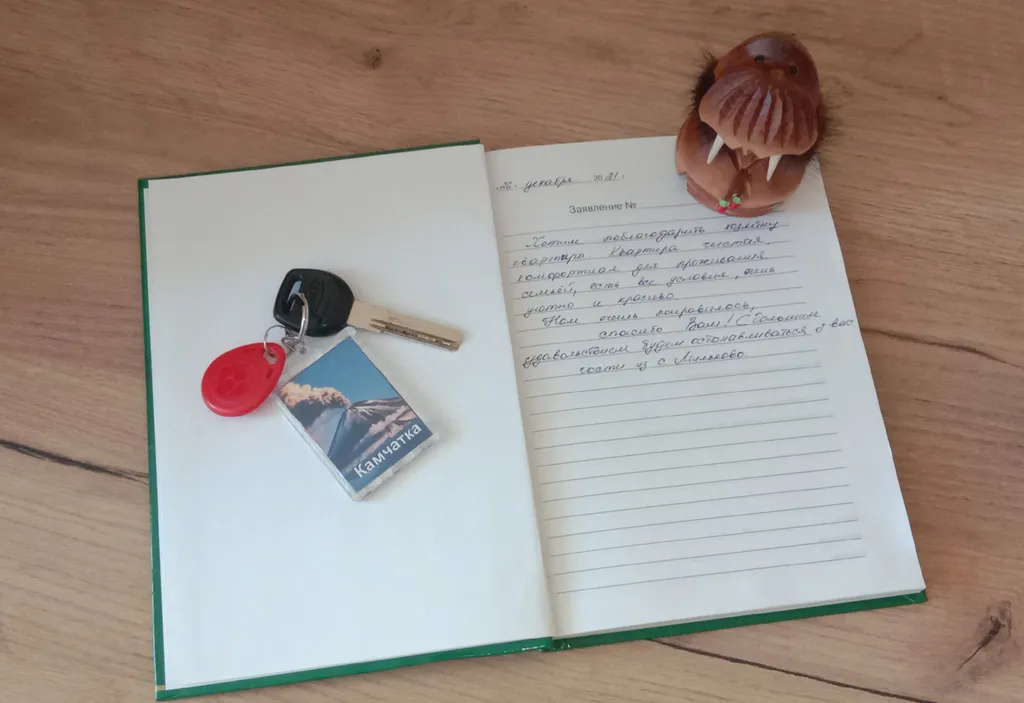 Камчатка
декабря 2021г.
Заявление №
Хотим поблагодарить хозяйку
квартиры. Квартира чистая,
комфортная для проживания
семьёй, есть все условия, очень
уютно и красиво.
Нам очень понравилось,
спасибо Вам! С большим
удовольствием будем останавливаться у вас
гости из с. Мильково.